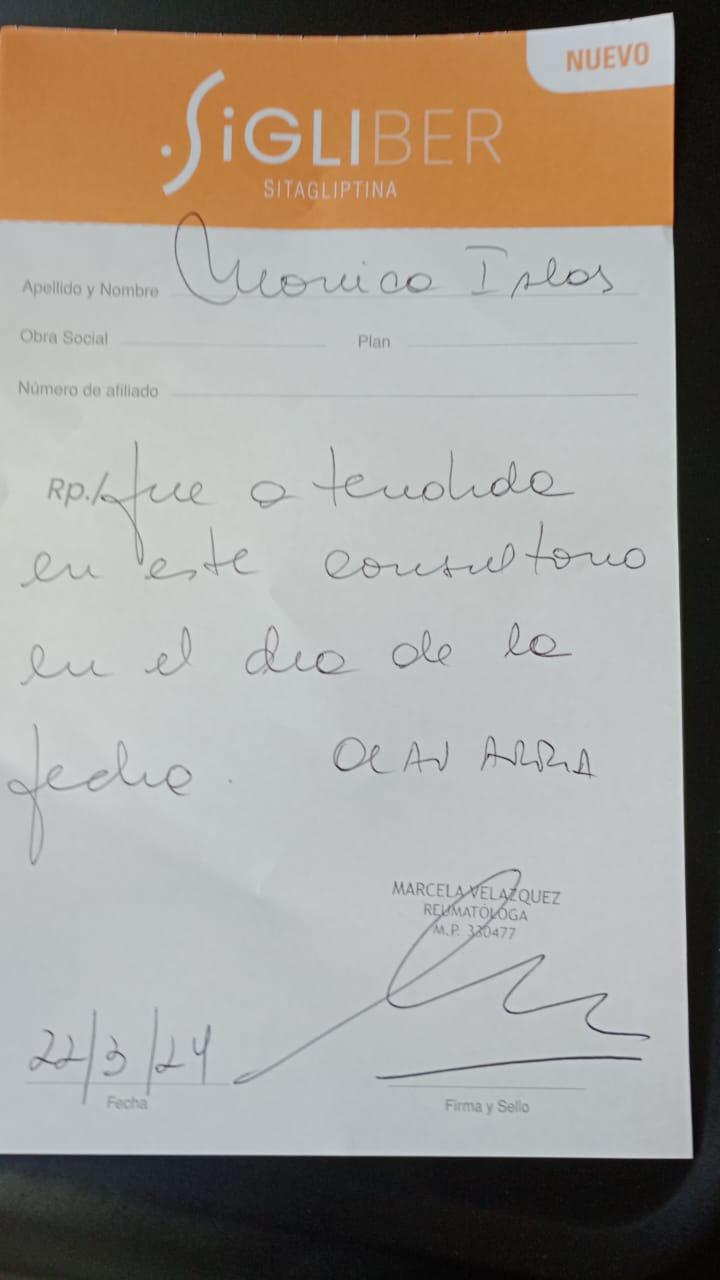 NUEVO
SiGLIBER
SITAGLIPTINA
Apellido y Nombre Monica Islas
Obra Social Plan
Número de afiliado
Rp./ fue atendida
en este consultorio
en el dia de la
fecha. OLAVARRIA
MARCELA VELAZQUEZ
REUMATÓLOGA
M.P. 330477
22/3/24
Fecha Firma y Sello